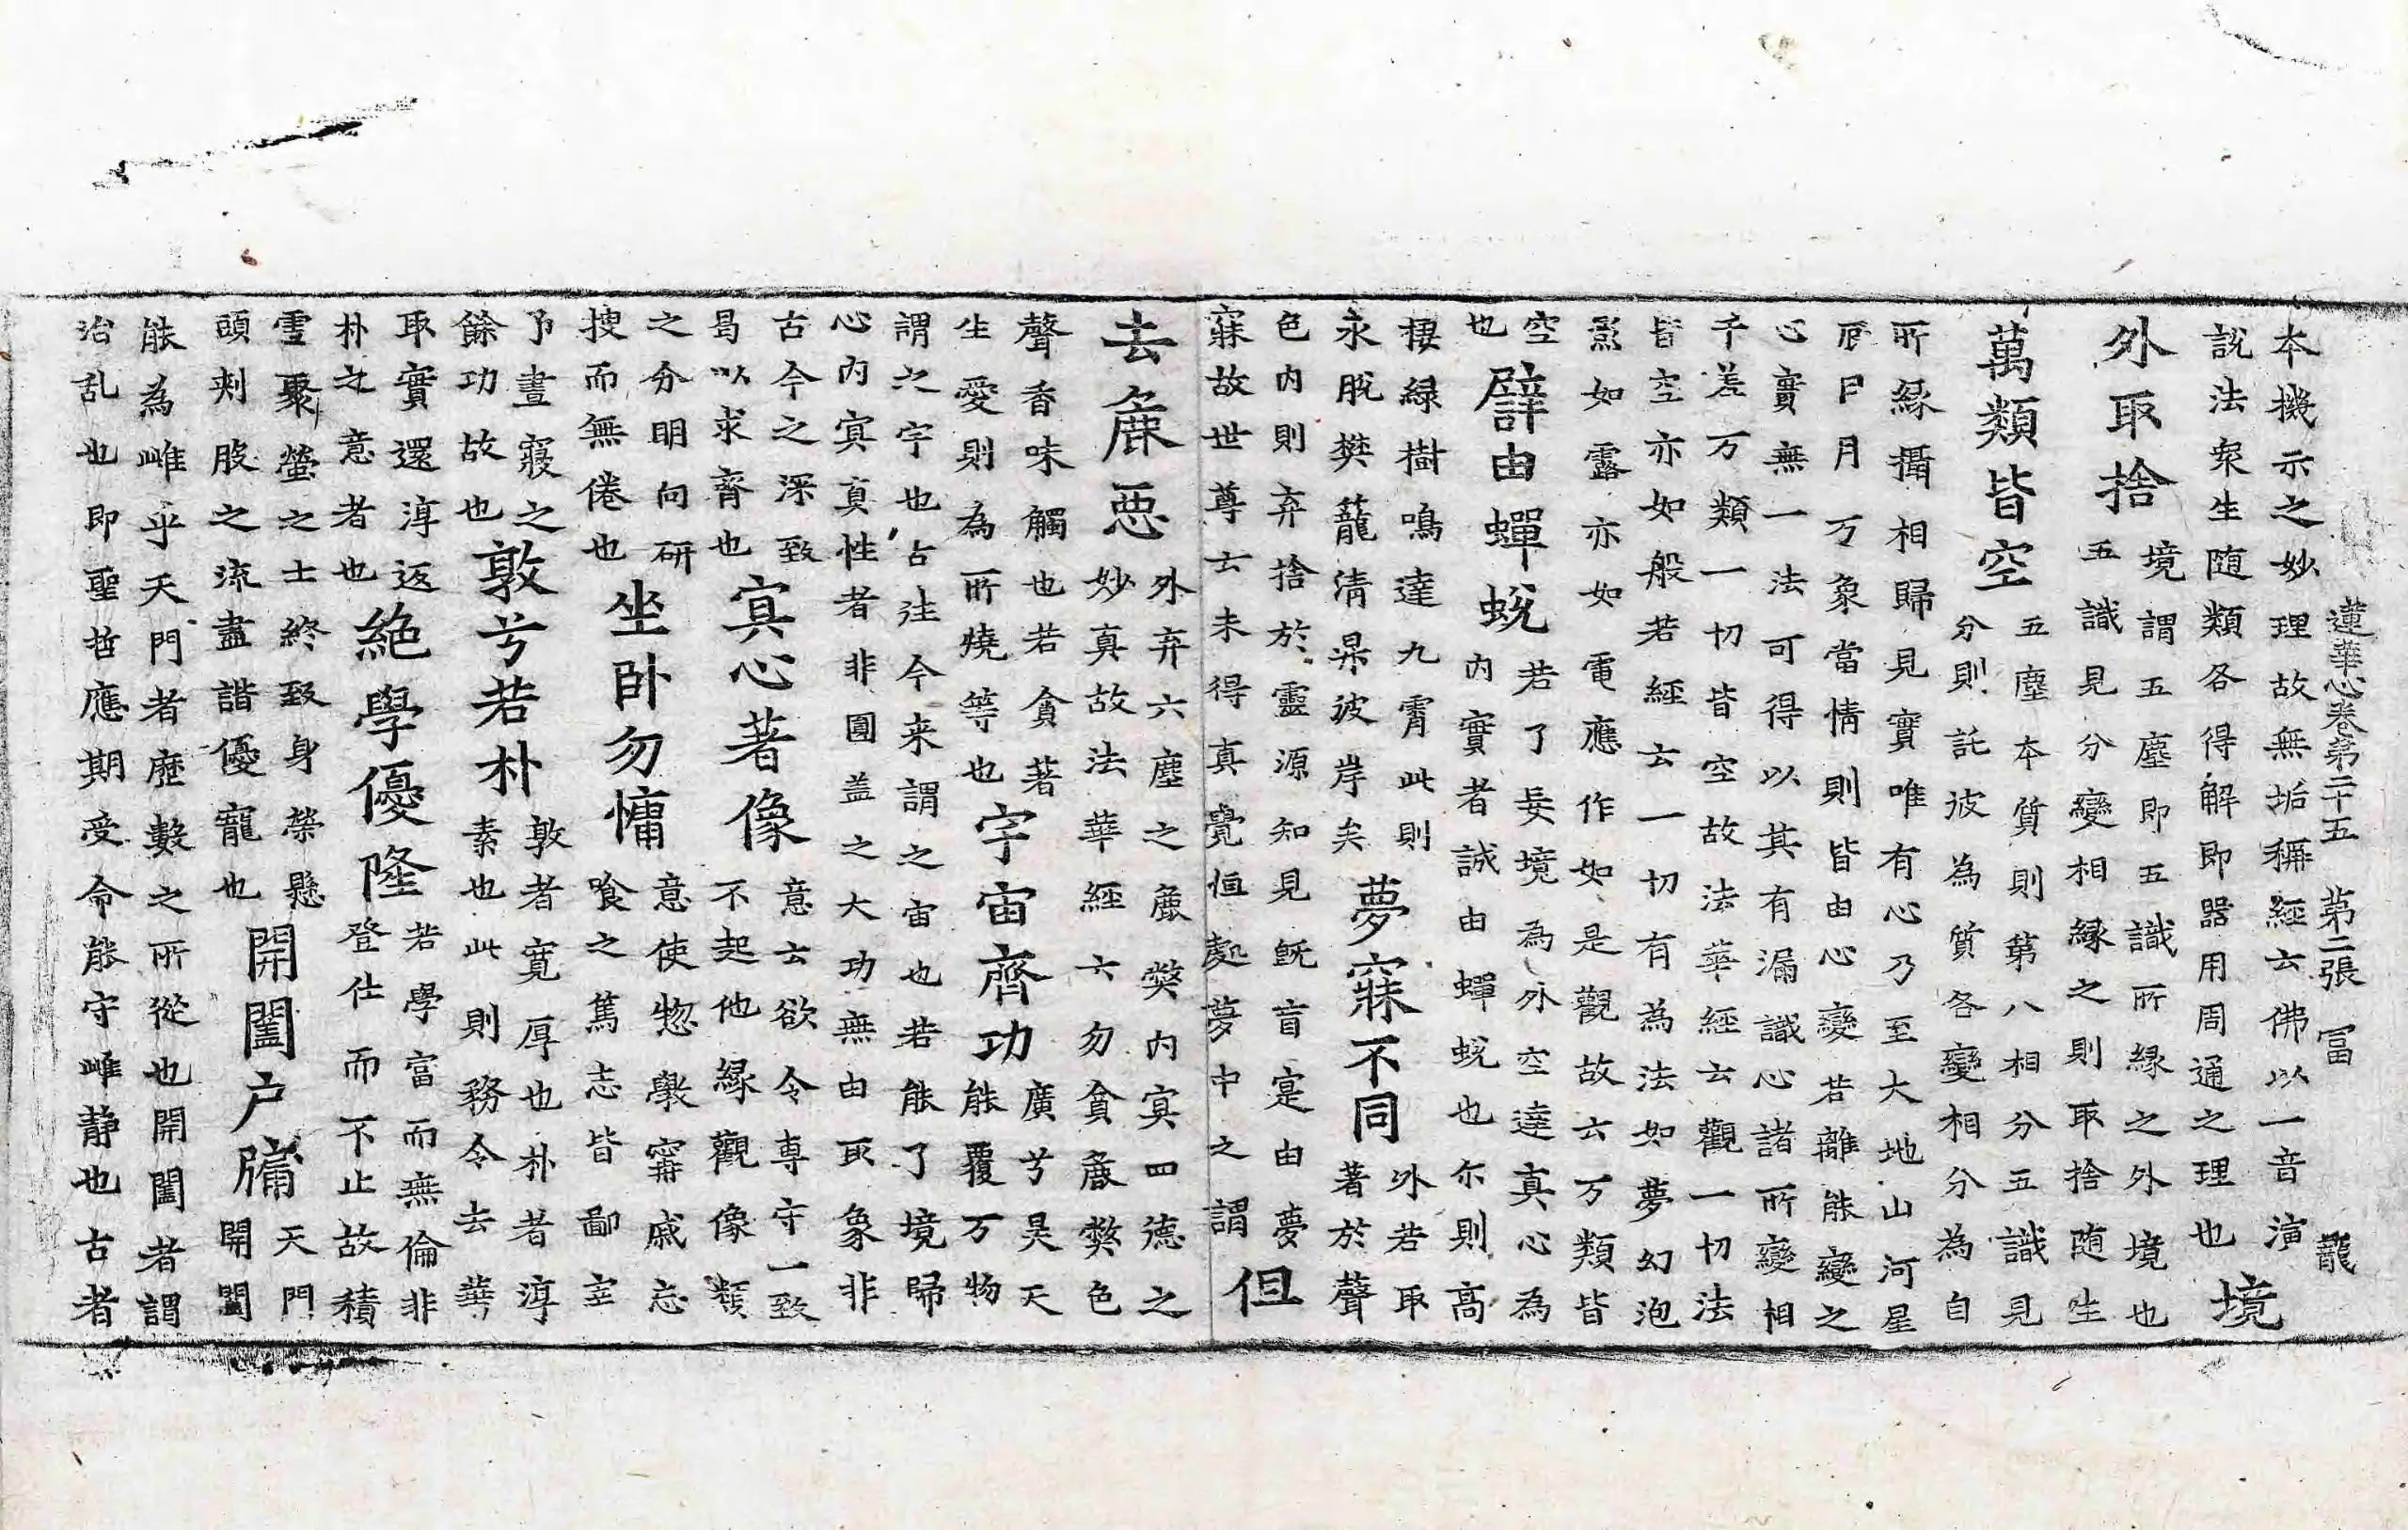 蓮華心卷第二十五 第二張 冨 龍
本機示之妙理故無垢稱經云佛以一音演
說法衆生随類各得解即器用周通之理也
境
外取捨
境謂五塵即五識所縁之外境也
五識見分變相縁之則取捨随生
萬類皆空
五塵本質則第八相分五識見
分則託彼為質各變相分為自
所縁攝相歸見實唯有心乃至大地山河星
辰日月万象當情則皆由心變若離能變之
心實無一法可得以其有漏識心諸所變相
千差万類一切皆空故法華經云觀一切法
皆空亦如般若經云一切有為法如夢幻泡
如露亦如電應作如是觀故云万類皆
空
也
譬由蟬蛻
若了妄境為外空達真心為
内實者誠由蟬蛻也尔則高
棲緑樹鳴達九霄此則
永脫樊籠清昇彼岸矣
夢寐不同
外若取
著於聲
色内則弃捨於靈源知見既盲寔由夢
寐故世尊云未得真覺恒處夢中之謂
但
去麁惡
外弃六塵之麁獘内㝠四德之
妙真故法華經云勿貪麁獘色
聲香味觸也若貪著
生愛則為所燒等也
宇宙齊功
廣兮昊天
能覆万物
謂之宇也占往今来謂之宙也若能了境歸
心内㝠真性者非圓盖之大功無由取象非
古今之深致
曷以求齊也
㝠心著像
意云欲令専守一致
不起他縁觀像類
之分明向研
搜而無倦也
坐卧勿慵
意使惣斆甯戚忘
飡之篤志皆鄙宰
予晝寢之
餘功故也
敦兮若朴
敦者寛厚也朴者淳
素也此則務令去華
取實還淳返
朴之意者也
絶學優隆
若學富而無倫非
登仕而不止故積
雪聚螢之士終致身榮懸
頭刺股之流盡諧優寵也
開闔户牖
天門
開闔
能為雌乎天門者歴數之所從也開闔者謂
治乱也即聖哲應期受命能守雌静也古者